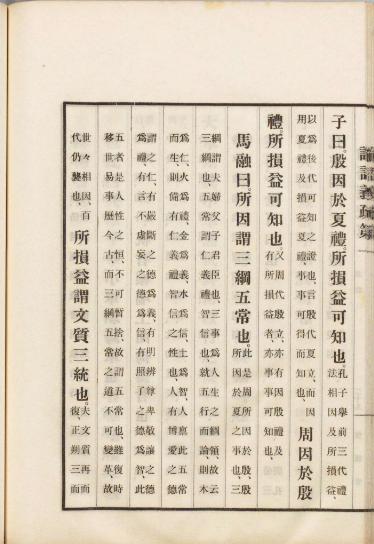 論語義疏第
子曰、殷因於夏禮、所損益可知也、孔子舉前三代禮法相因及所損益、
以爲後代可知之證也、言殷代夏立、而因用夏禮及損益夏禮、事事可得而知也、周因於殷
禮、所損益可知也、又周代殷立、亦有因殷禮及有所損益者、亦事事可知也、
馬融曰、所因謂三綱五常也、此是周所因於殷、殷所因於夏之事也、三
三綱謂夫婦父子君臣也、三事爲人生之綱領、故云三綱也、五常謂仁義禮智信也、就五行而論、則木
爲仁、火爲禮、金爲義、水爲信、土爲智、人稟此五常而生、則備有仁義禮智信之性也、人有博愛之德
謂之仁、有嚴斷之德爲義、有明辨尊卑敬讓之德爲禮、有言不虛妄之德爲信、有照了之德爲智、此
五者是人性之恒、不可暫捨、故謂五常也、雖復時移世易、事歷今古、而三綱五常之道不可變革、故
世々相因、百代仍襲也、所損益謂文質三統也、夫文質再而復、正朔三而